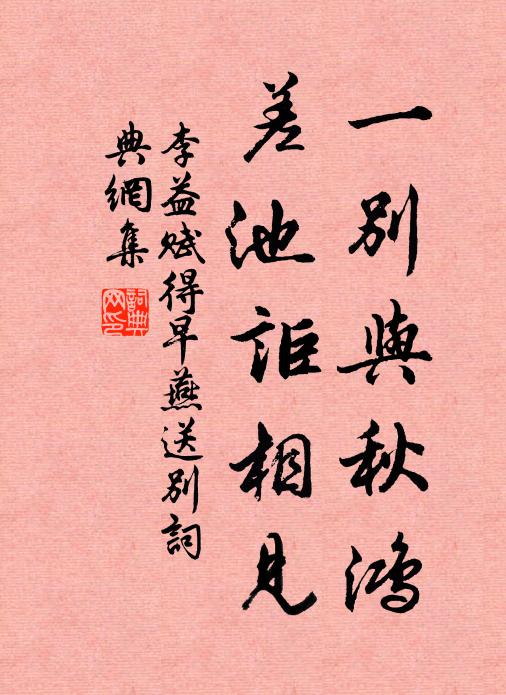 一別與秋鴻
差池詎相見
李益賦得早燕送別詞
典網集
詞典網印